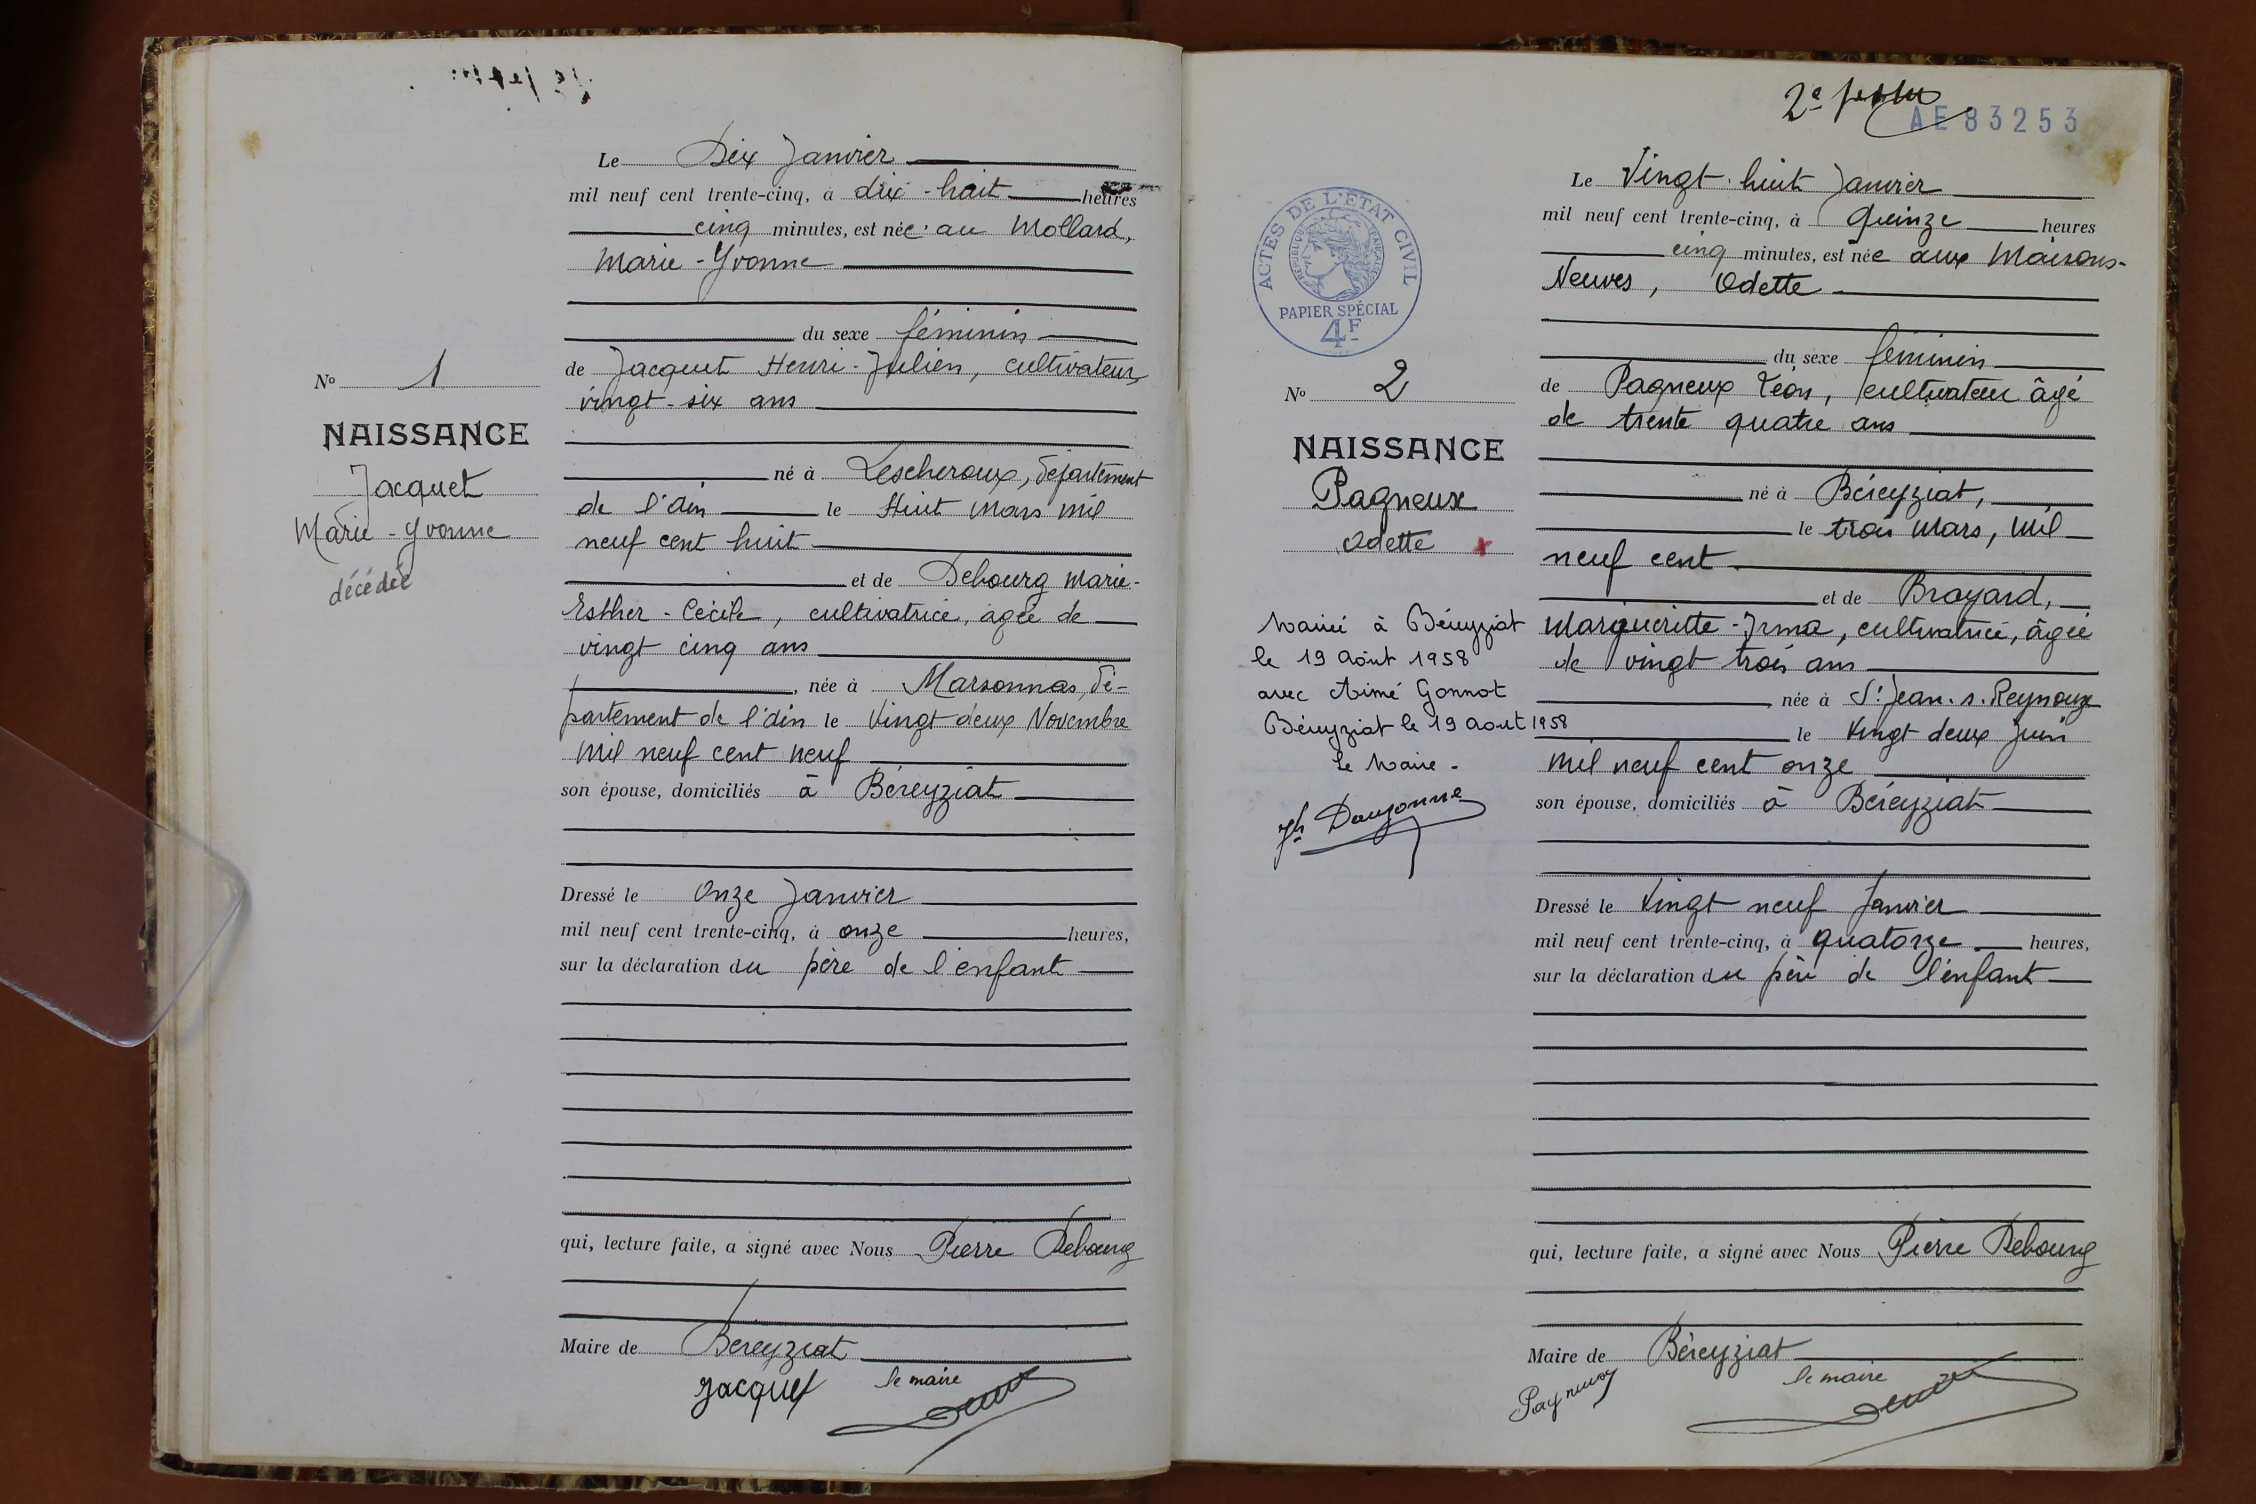 Le Dix Janvier
mil neuf cent trente-cinq, à dix-huit heures
cinq minutes, est née au Mollard,
Marie-Yvonne
du sexe féminin
de Jacquet Henri-Julien, cultivateur,
vingt-six ans
né à Lescheroux, département
de l'Ain le Huit Mars mil
neuf cent huit
et de Debourg Marie-
Esther-Cécile, cultivatrice, agée de
vingt cinq ans
, née à Marsonnas, dé-
partement de l'Ain le Vingt deux Novembre
mil neuf cent neuf
son épouse, domiciliés à Béreyziat
Dressé le Onze Janvier
mil neuf cent trente-cinq, à onze heures,
sur la déclaration du père de l'enfant
qui, lecture faite, a signé avec Nous Pierre Debourg
Maire de Béreyziat
Jacquet le maire
No 1
NAISSANCE
Jacquet
Marie-Yvonne
décédée
2e
AE 83253
ACTES DE L'ETAT CIVIL
REPUBLIQUE FRANÇAISE
PAPIER SPÉCIAL
4F
Le Vingt-huit Janvier
mil neuf cent trente-cinq, à quinze heures
cinq minutes, est née aux Maisons-
Neuves, Odette
du sexe féminin
de Pagneux Léon, cultivateur âgé
de trente quatre ans
né à Béreyziat,
le trois Mars, mil
neuf cent
et de Brayard,
Margueritte-Irma, cultivatrice, âgée
de vingt trois ans
née à St Jean-s-Reyssouze
le Vingt deux Juin
mil neuf cent onze
son épouse, domiciliés à Béreyziat
Dressé le Vingt neuf Janvier
mil neuf cent trente-cinq, à quatorze heures,
sur la déclaration du père de l'enfant
qui, lecture faite, a signé avec Nous Pierre Debourg
Maire de Béreyziat
Pagneux le maire
No 2
NAISSANCE
Pagneux
Odette
Mariée à Béreyziat
le 19 Août 1958
avec Aimé Gonnot
Béreyziat le 19 Aout 1958
Le Maire -